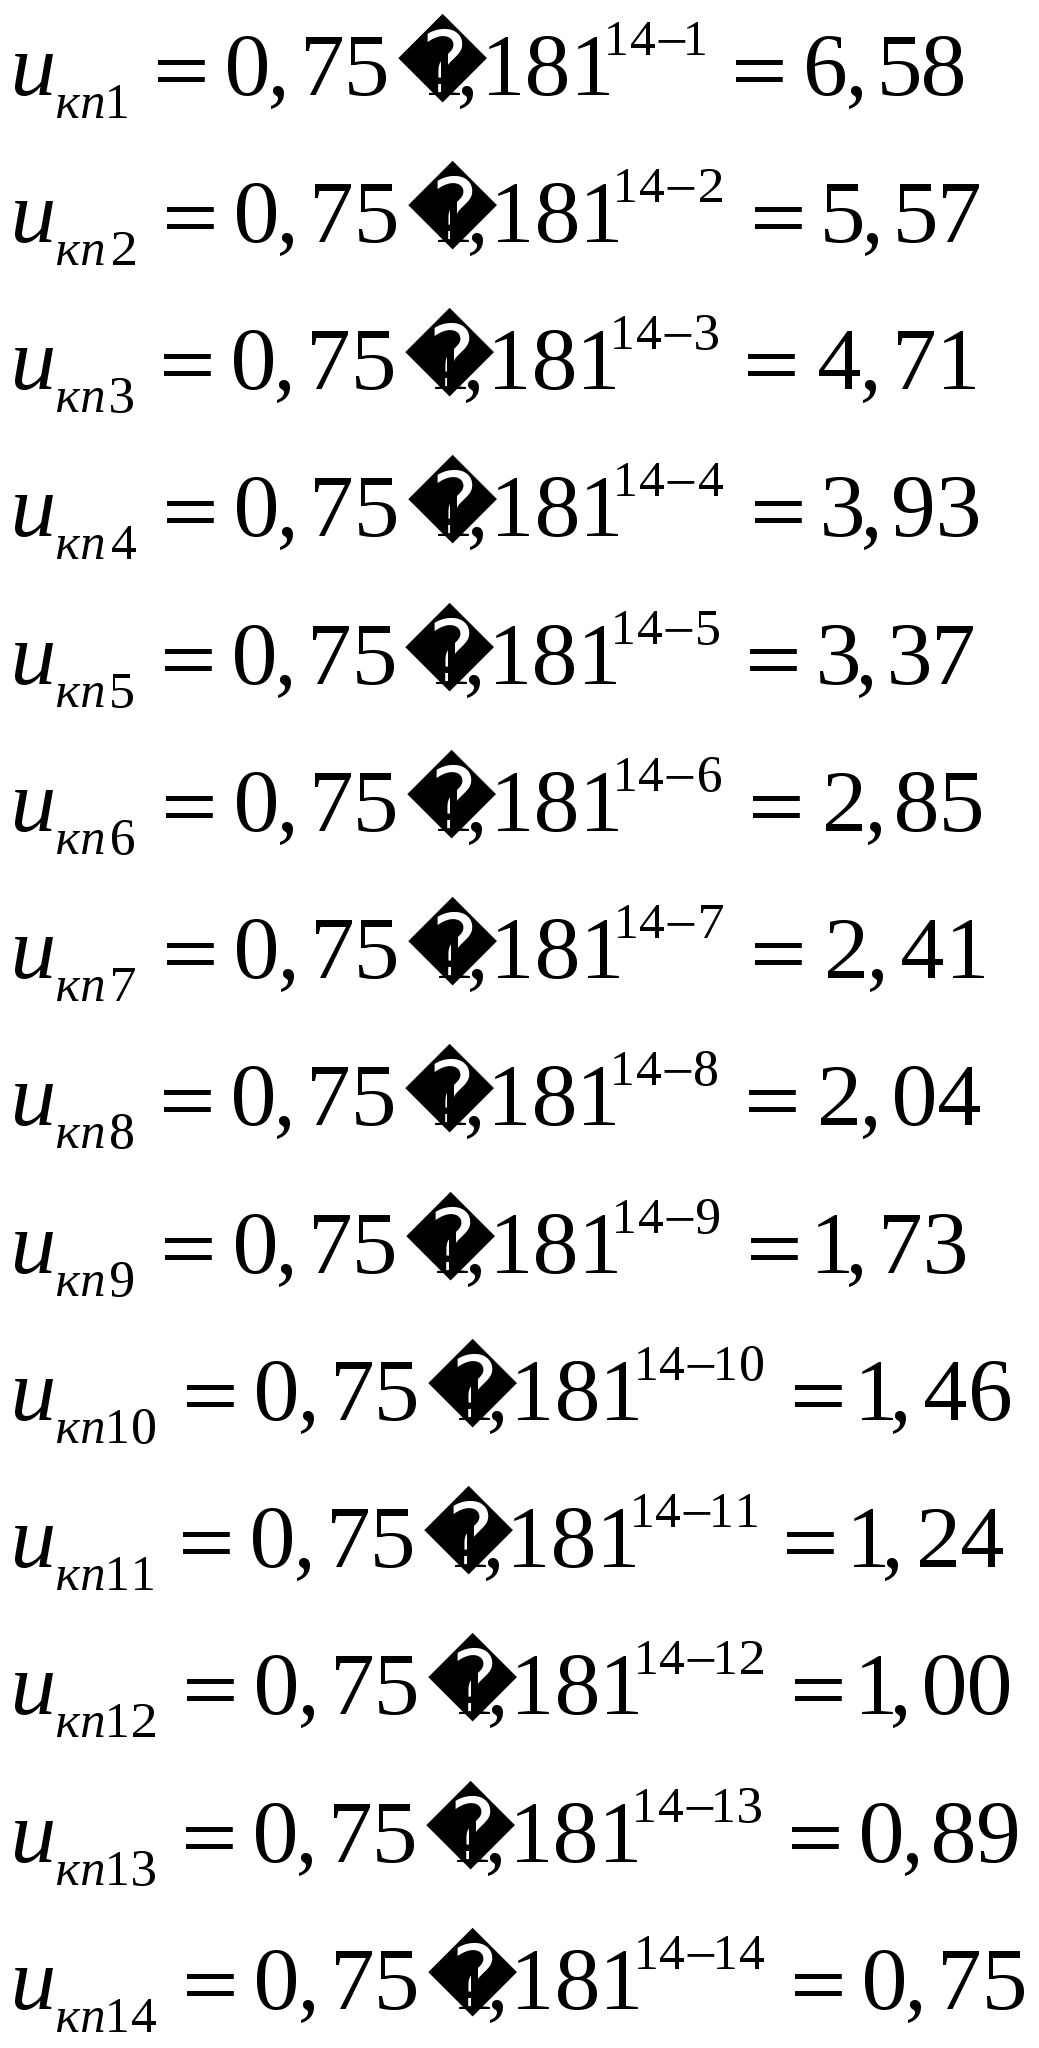 u_кп1 = 0,75 �1,181^14−1 = 6,58
u_кп2 = 0,75 �1,181^14−2 = 5,57
u_кп3 = 0,75 �1,181^14−3 = 4,71
u_кп4 = 0,75 �1,181^14−4 = 3,93
u_кп5 = 0,75 �1,181^14−5 = 3,37
u_кп6 = 0,75 �1,181^14−6 = 2,85
u_кп7 = 0,75 �1,181^14−7 = 2,41
u_кп8 = 0,75 �1,181^14−8 = 2,04
u_кп9 = 0,75 �1,181^14−9 = 1,73
u_кп10 = 0,75 �1,181^14−10 = 1,46
u_кп11 = 0,75 �1,181^14−11 = 1,24
u_кп12 = 0,75 �1,181^14−12 = 1,00
u_кп13 = 0,75 �1,181^14−13 = 0,89
u_кп14 = 0,75 �1,181^14−14 = 0,75